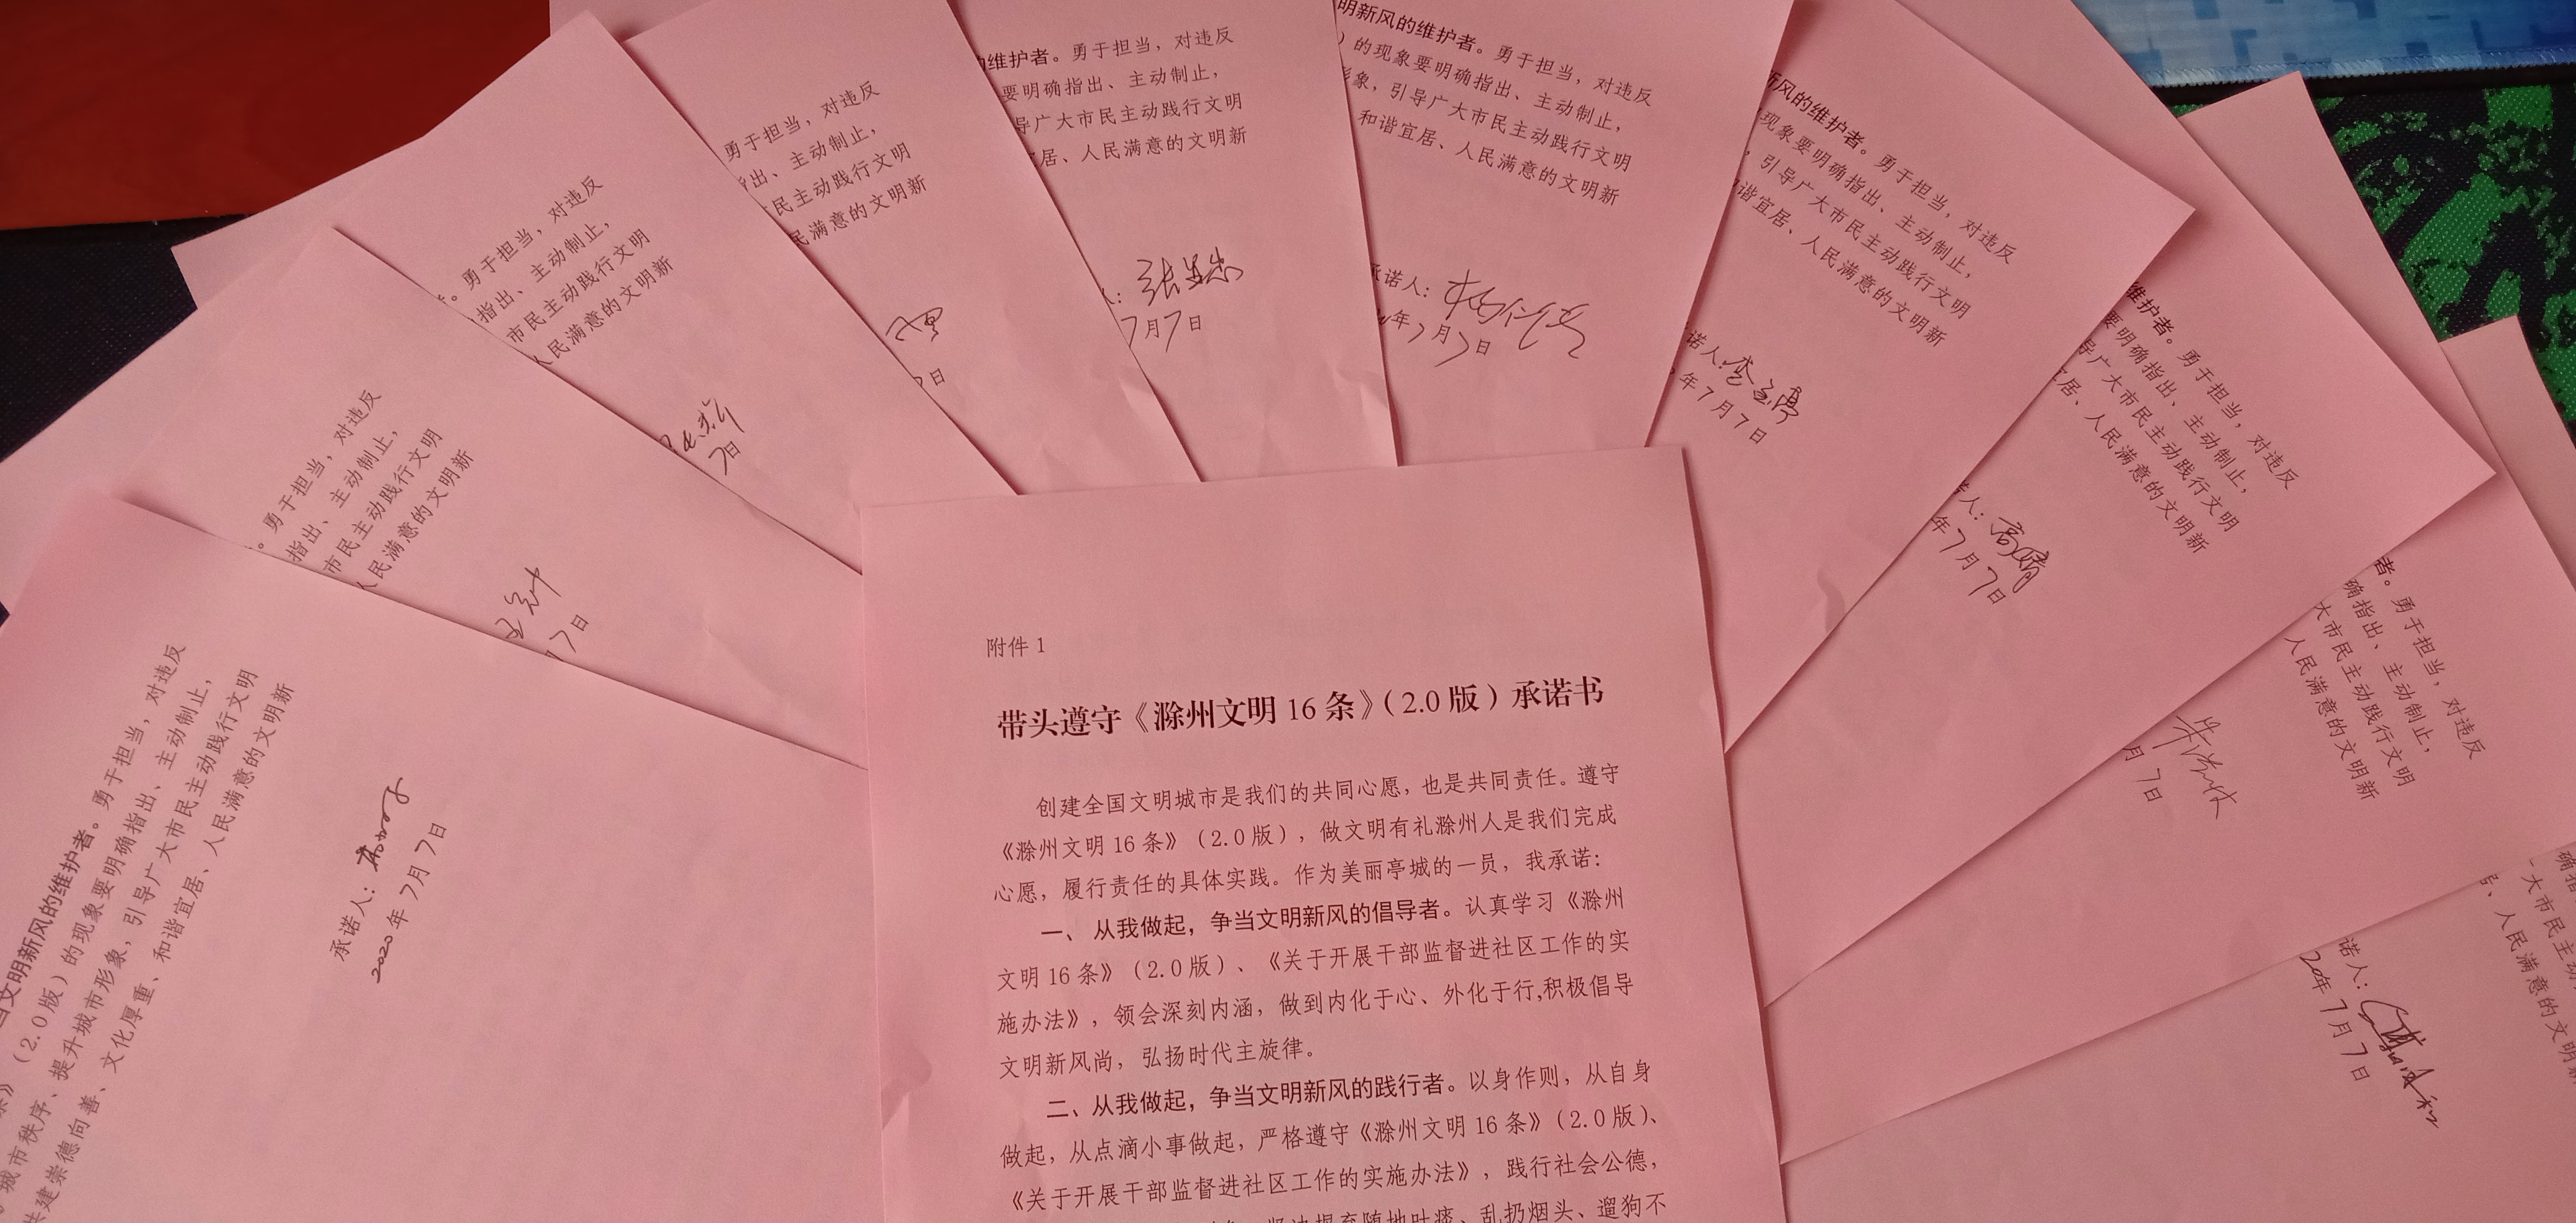 附件 1
带头遵守《滁州文明 16 条》（2.0 版）承诺书
创建全国文明城市是我们的共同心愿，也是共同责任。遵守
《滁州文明 16 条》（2.0 版），做文明有礼滁州人是我们完成
心愿，履行责任的具体实践。作为美丽亭城的一员，我承诺：
一、 从我做起，争当文明新风的倡导者。认真学习《滁州
文明 16 条》（2.0 版）、《关于开展干部监督进社区工作的实
施办法》，领会深刻内涵，做到内化于心、外化于行,积极倡导
文明新风尚，弘扬时代主旋律。
二、从我做起，争当文明新风的践行者。以身作则，从自身
做起，从点滴小事做起，严格遵守《滁州文明 16 条》（2.0 版）、
《关于开展干部监督进社区工作的实施办法》，践行社会公德，
乱扔烟头、遛狗不
文明新风的维护者。勇于担当，对违反
》（2.0 版）的现象要明确指出、主动制止，
城市秩序、提升城市形象，引导广大市民主动践行文明
共建崇德向善、文化厚重、和谐宜居、人民满意的文明新
承诺人：
2020 年 7 月 7 日
。勇于担当，对违反
指出、主动制止，
市民主动践行文明
人民满意的文明新
7 日
。勇于担当，对违反
指出、主动制止，
市民主动践行文明
人民满意的文明新
7日
勇于担当，对违反
出、主动制止，
民主动践行文明
民满意的文明新
日
的维护者。勇于担当，对违反
要明确指出、主动制止，
导广大市民主动践行文明
居、人民满意的文明新
7 月 7 日
明新风的维护者。勇于担当，对违反
）的现象要明确指出、主动制止，
形象，引导广大市民主动践行文明
和谐宜居、人民满意的文明新
承诺人：
年 7 月 7 日
新风的维护者。勇于担当，对违反
现象要明确指出、主动制止，
，引导广大市民主动践行文明
和谐宜居、人民满意的文明新
诺人：李玉亭
年 7 月 7 日
维护者。勇于担当，对违反
要明确指出、主动制止，
导广大市民主动践行文明
居、人民满意的文明新
诺人：高晴
年 7 月 7 日
者。勇于担当，对违反
确指出、主动制止，
大市民主动践行文明
人民满意的文明新
月 7 日
大市民主动
、人民满意的文明
诺人：
年 7 月 7 日